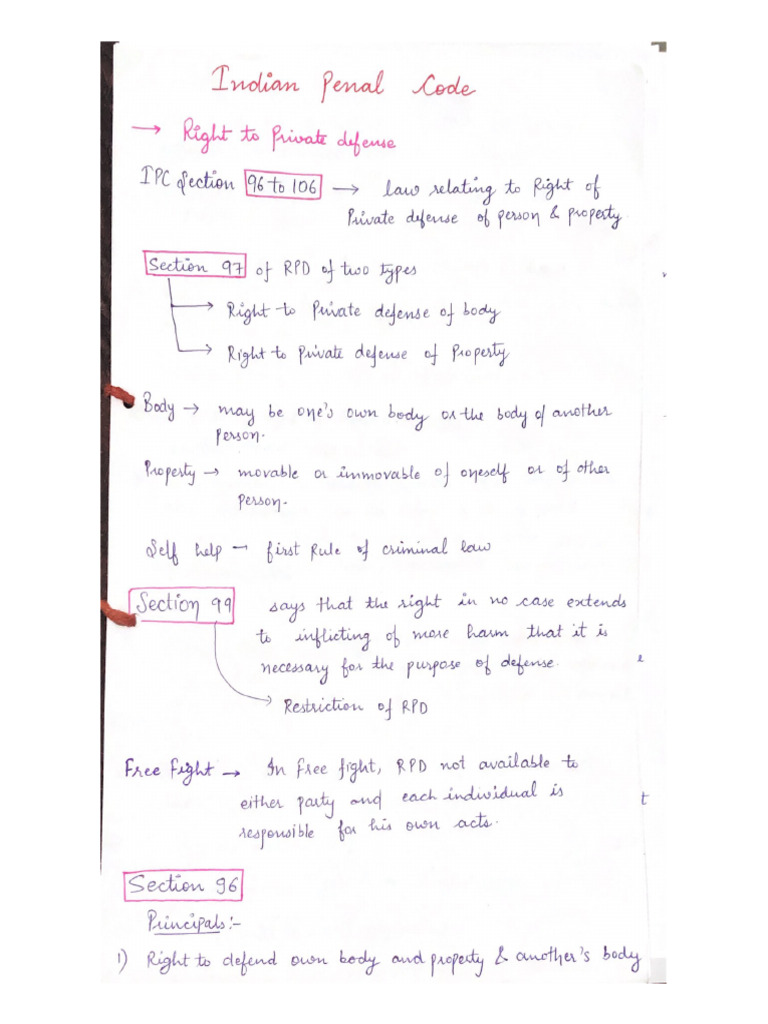 Indian Penal Code
→ Right to Private defense
IPC Section 96 to 106 → law relating to Right of
Private defense of person & property
Section 97 of RPD of two types
→ Right to Private defense of body
→ Right to Private defense of Property
Body → may be one's own body or the body of another
person.
Property → movable or immovable of oneself or of other
person.
Self help - first Rule of criminal law
Section 99 says that the right in no case extends
to inflicting of more harm that it is
necessary for the purpose of defense.
→ Restriction of RPD
Free Fight → In free fight, RPD not available to
either party and each individual is
responsible for his own acts.
Section 96
Principals:-
1) Right to defend own body and property & another's body